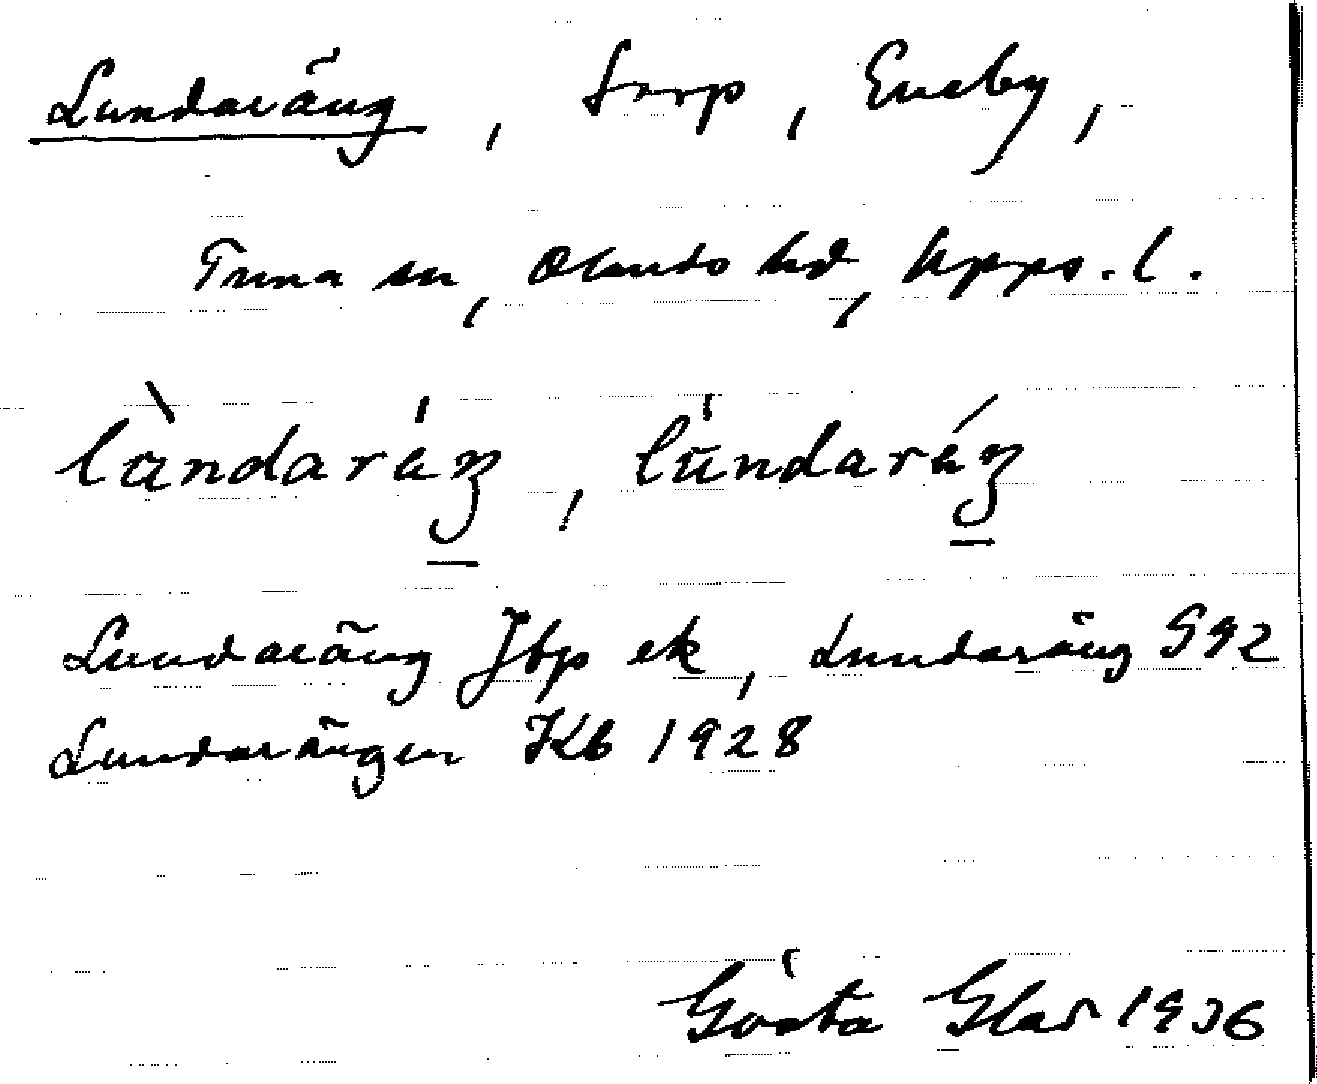 Lundaräng, torp, Eneby,
Tuna sn, Olands hd, Upps. l.
Lundaräng Jbp ek, Lundaräng G 92
Lundarängen Kb 1928
Gösta Glas 1936